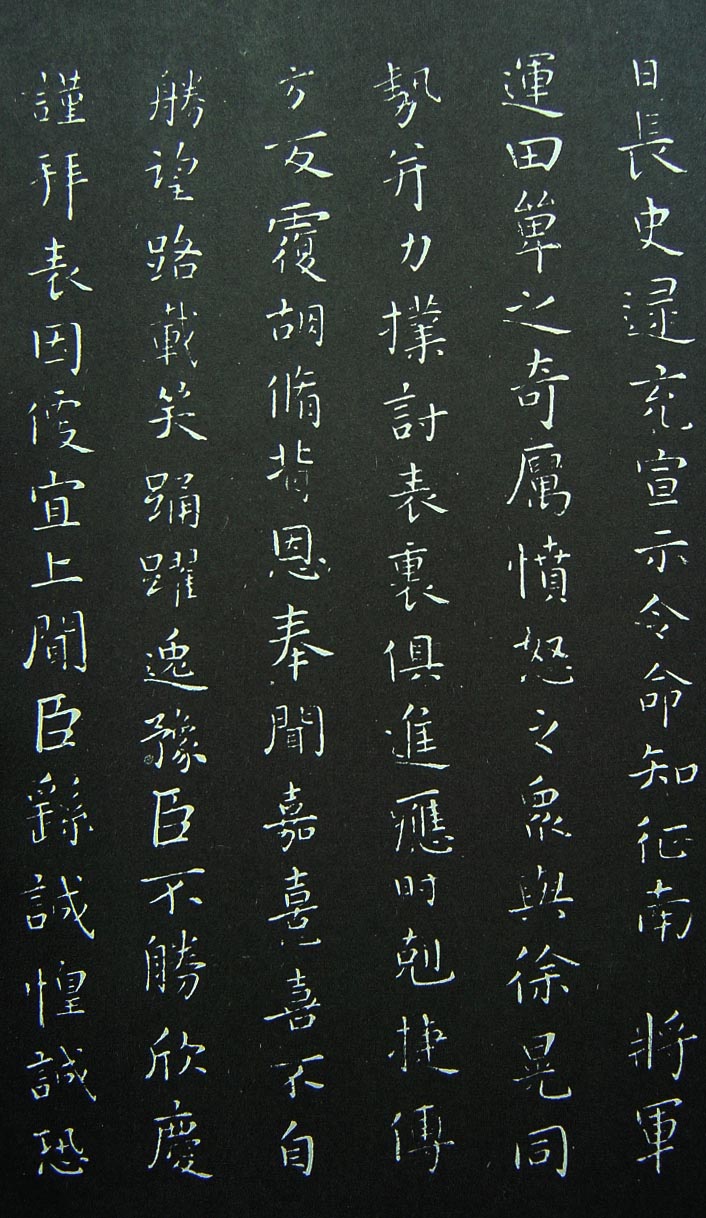 日長史逯充宣示令命知征南 將軍
運田單之奇厲憤怒之眾與徐晃同
勢并力撲討表裏俱進應時剋捷傳
方反覆胡脩背恩奉聞嘉憙喜不自
勝望路載笑踊躍逸豫臣不勝欣慶
謹拜表因便宜上聞臣繇誠惶誠恐